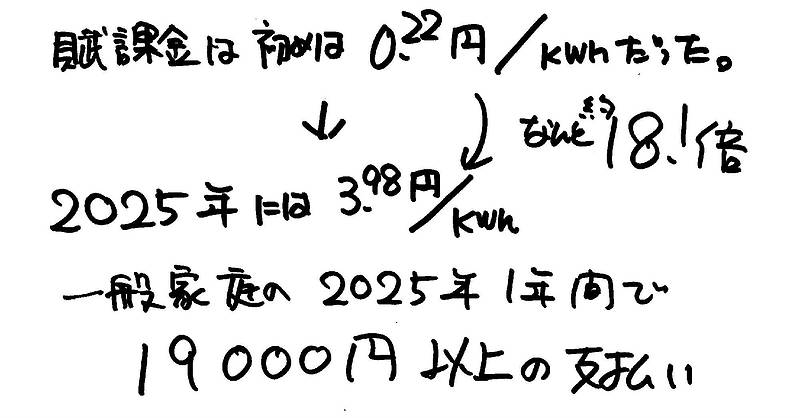 賦課金は初めは0.22円/kwhだった。
↓ なんと約18.1倍
2025年には3.98円/kwh
一般家庭の2025年1年間で
19000円以上の支払い